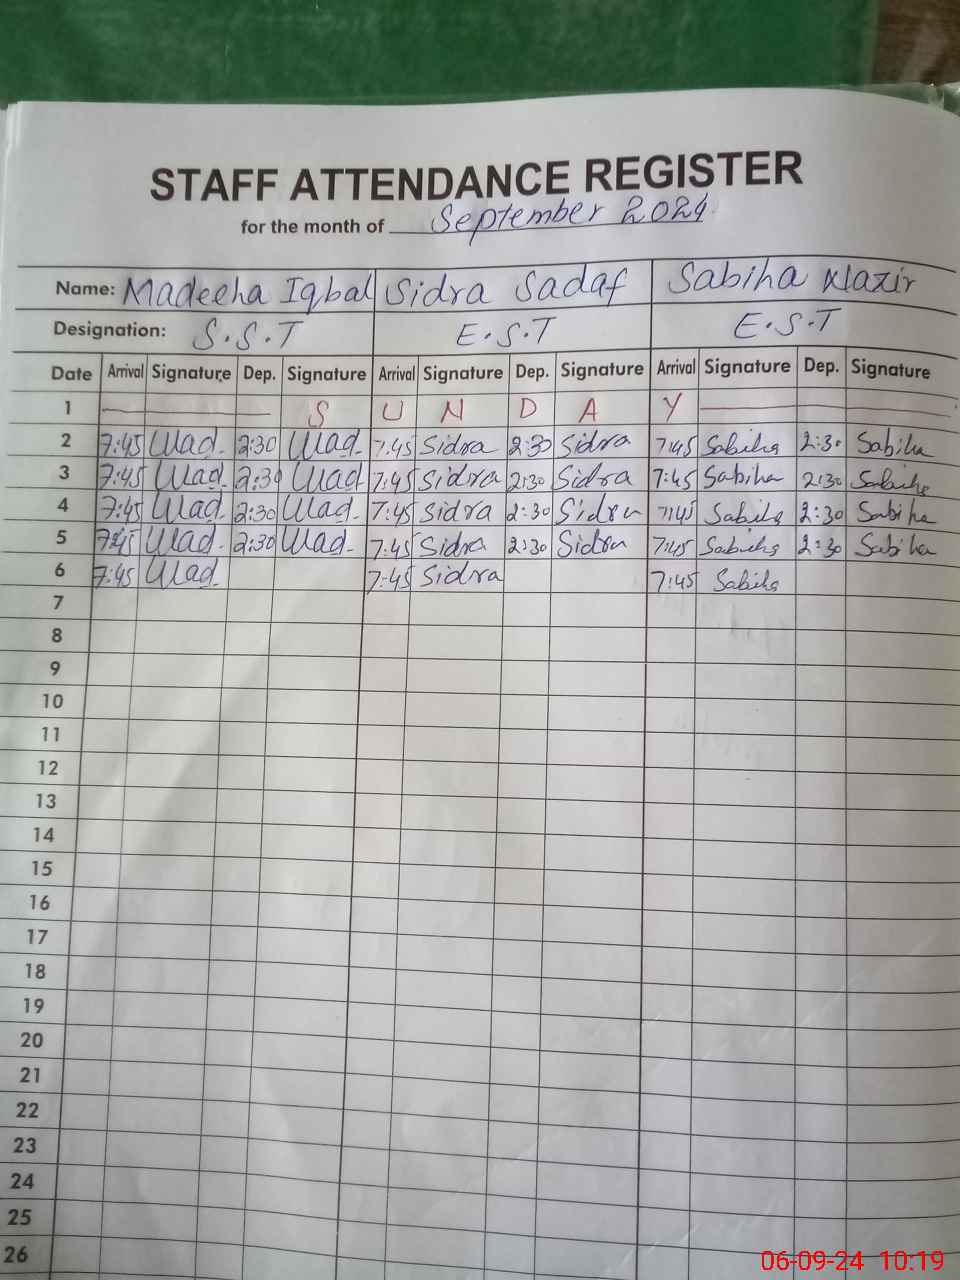 STAFF ATTENDANCE REGISTER
for the month of September 2024
Name: Madeeha Iqbal Sidra Sadaf Sabiha Nazir
Designation: S.S.T E.S.T E.S.T
Date Arrival Signature Dep. Signature Arrival Signature Dep. Signature Arrival Signature Dep. Signature
1 S U N D A Y
2 7:45 Mad. 2:30 Mad. 7:45 Sidra 2:30 Sidra 7:45 Sabiha 2:30 Sabiha
3 7:45 Mad. 2:30 Mad. 7:45 Sidra 2:30 Sidra 7:45 Sabiha 2:30 Sabiha
4 7:45 Mad. 2:30 Mad. 7:45 Sidra 2:30 Sidra 7:45 Sabiha 2:30 Sabiha
5 7:45 Mad. 2:30 Mad. 7:45 Sidra 2:30 Sidra 7:45 Sabiha 2:30 Sabiha
6 7:45 Mad. 7:45 Sidra 7:45 Sabiha
7
8
9
10
11
12
13
14
15
16
17
18
19
20
21
22
23
24
25
26
06-09-24 10:19